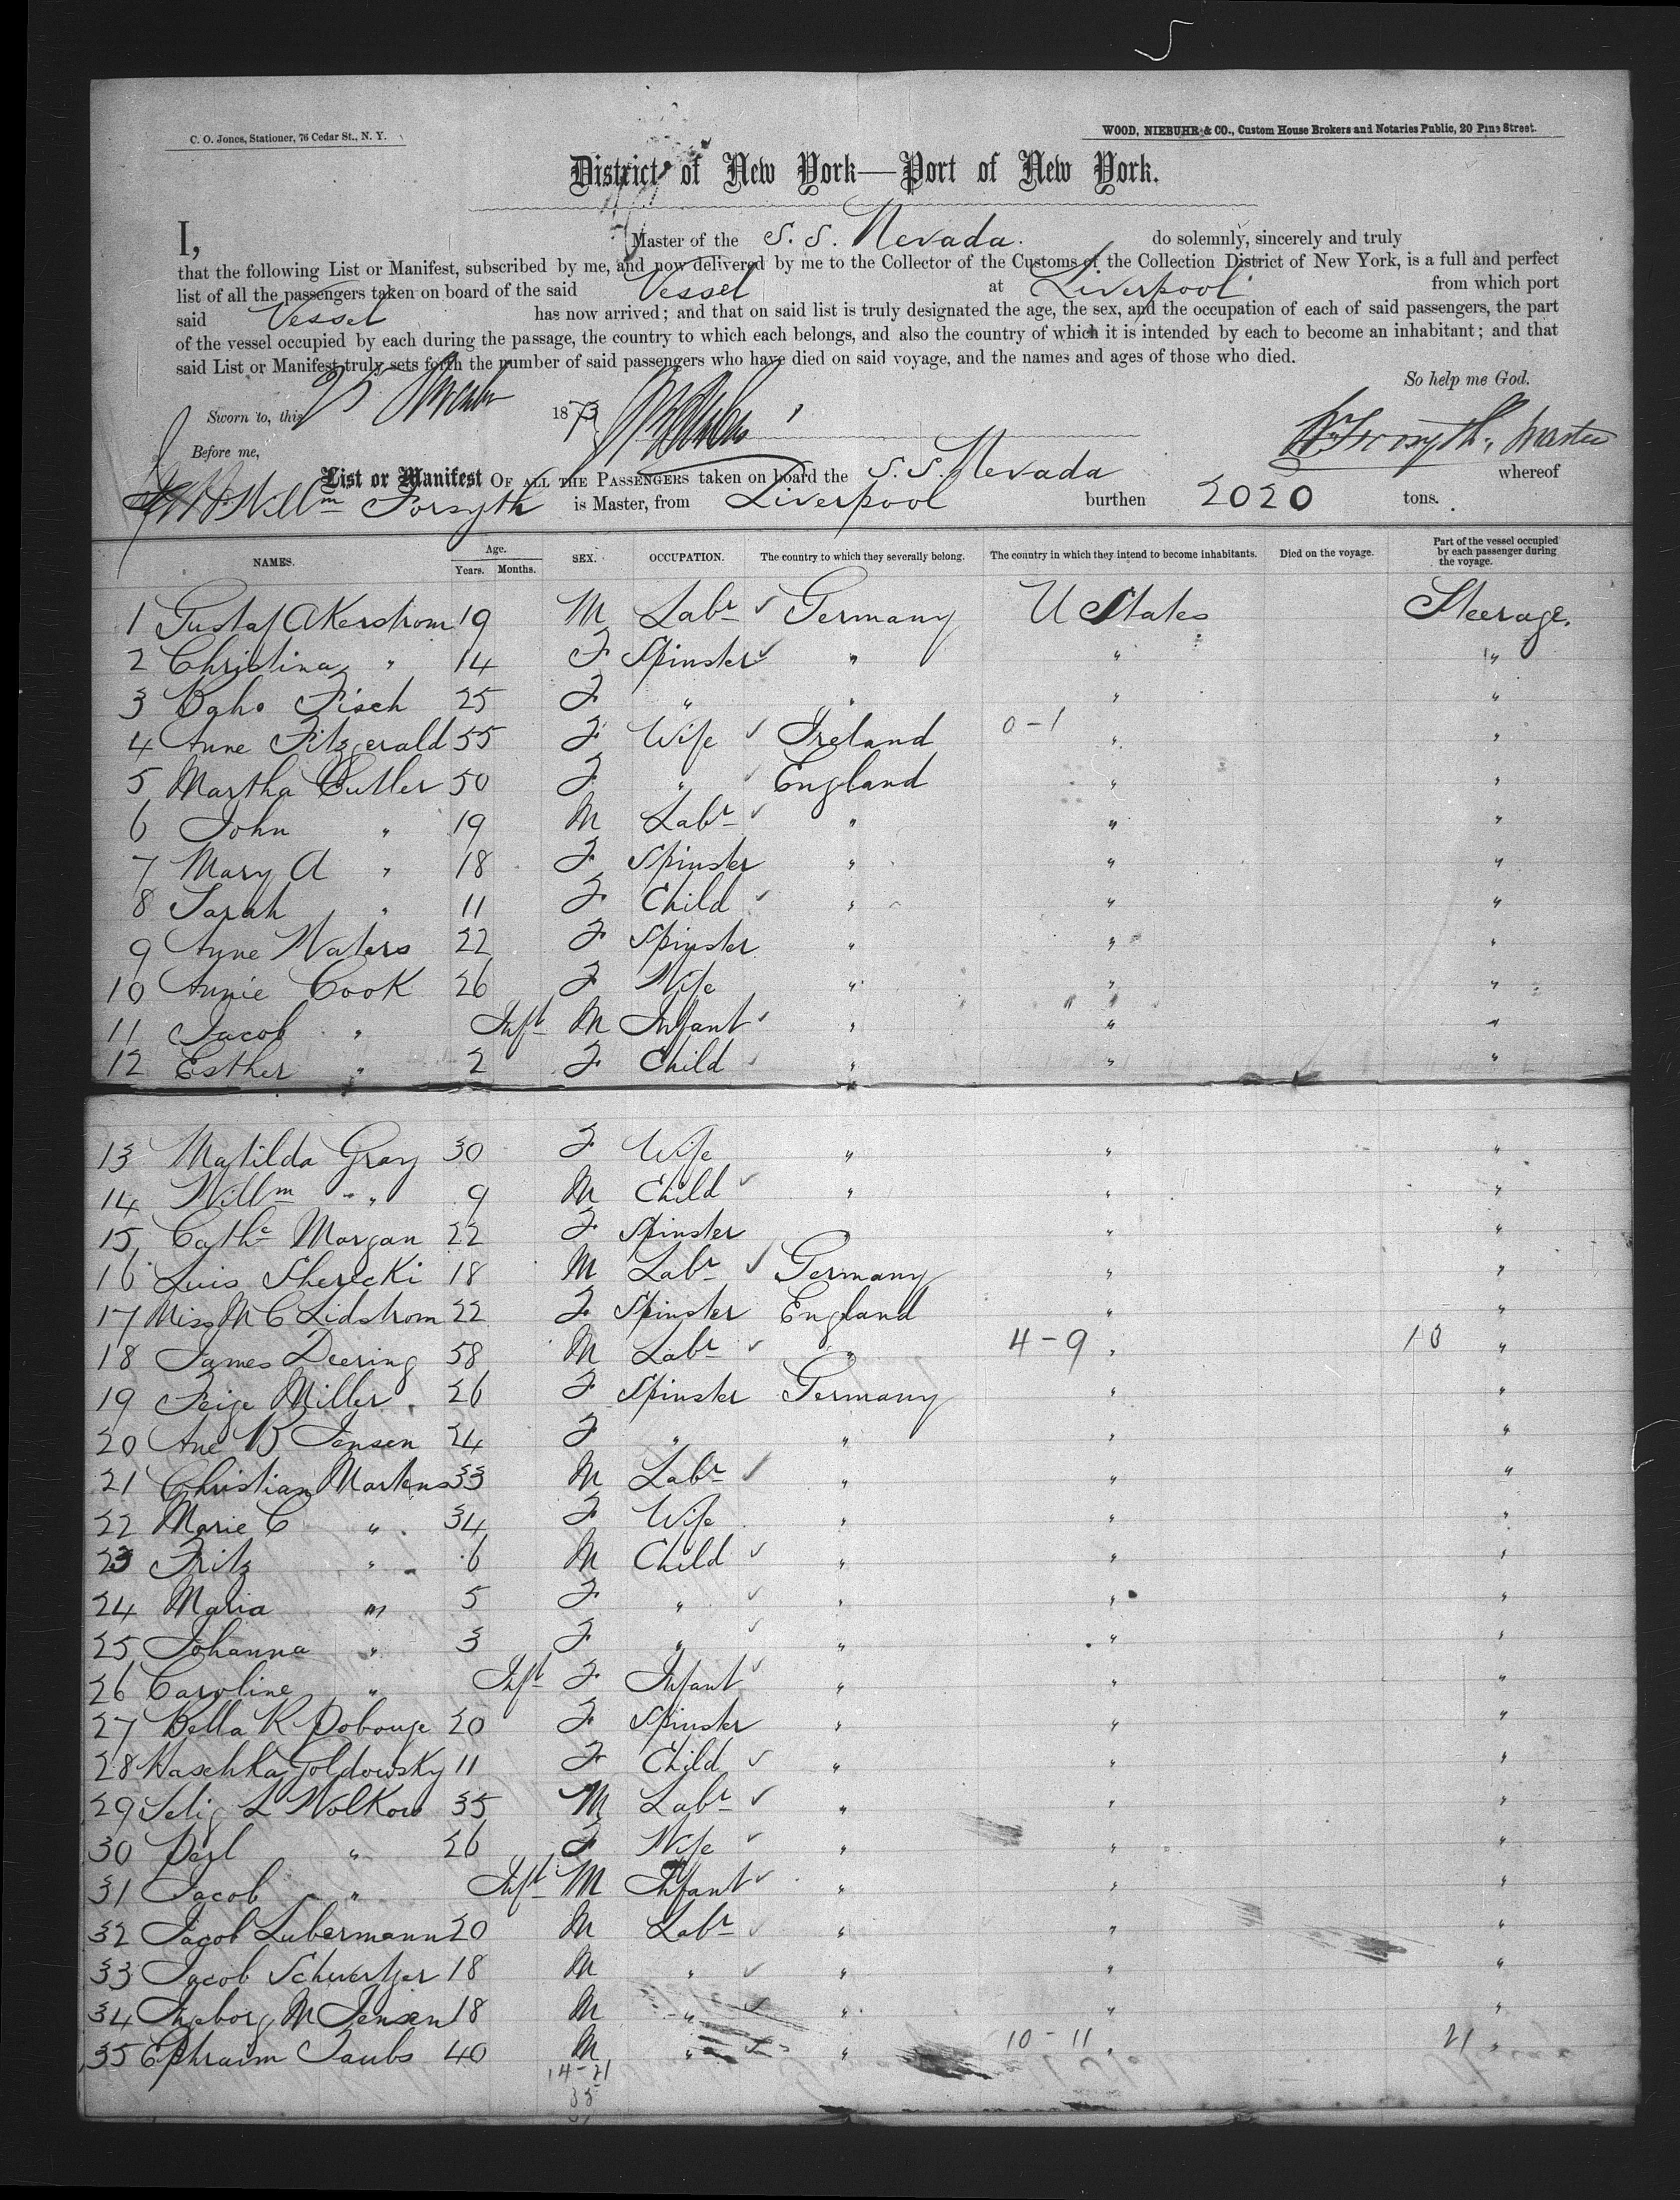 C. O. Jones, Stationer, 76 Cedar St., N. Y.
WOOD, NIEBUHR & CO., Custom House Brokers and Notaries Public, 20 Pine Street.
District of New York—Port of New York.
I, Master of the S. S. Nevada. do solemnly, sincerely and truly
that the following List or Manifest, subscribed by me, and now delivered by me to the Collector of the Customs of the Collection District of New York, is a full and perfect
list of all the passengers taken on board of the said Vessel at Liverpool from which port
said Vessel has now arrived; and that on said list is truly designated the age, the sex, and the occupation of each of said passengers, the part
of the vessel occupied by each during the passage, the country to which each belongs, and also the country of which it is intended by each to become an inhabitant; and that
said List or Manifest truly sets forth the number of said passengers who have died on said voyage, and the names and ages of those who died.
So help me God.
Sworn to, this 25 1873
Wm Forsyth, Master
Before me,
List or Manifest OF ALL THE PASSENGERS taken on board the S. S. Nevada whereof
Willm Forsyth is Master, from Liverpool burthen 2020 tons.
NAMES. Age. Years. Months. SEX. OCCUPATION. The country to which they severally belong. The country in which they intend to become inhabitants. Died on the voyage. Part of the vessel occupied by each passenger during the voyage.
1 Gustaf Akerstrom 19 M Labr Germany U States Steerage.
2 Christina " 14 F Spinster " " "
3 Fisch 25 F " " " "
4 Anne Fitzgerald 55 F Wife Ireland 0-1 " "
5 Martha Cutler 50 F " England " "
6 John " 19 M Labr " " "
7 Mary A " 18 F Spinster " " "
8 Sarah " 11 F Child " " "
9 Anne Waters 22 F Spinster " " "
10 Annie Cook 26 F Wife " " "
11 Jacob " Inft M Infant " " "
12 Esther " 2 F Child " " "
13 Matilda Gray 30 F Wife " " "
14 Willm " 9 M Child " " "
15 Cathe Morgan 22 F Spinster " "
16 Luis Sherecki 18 M Labr Germany " "
17 Miss M C Lidstrom 22 F Spinster England " "
18 James Deering 58 M Labr " 4-9 " 10 "
19 Feige Miller 26 F Spinster Germany " "
20 Ane B Jensen 24 F " " " "
21 Christian Martens 33 M Labr " " "
22 Marie C " 34 F Wife " " "
23 Fritz " 6 M Child " " "
24 Maria " 5 F " " " "
25 Johanna " 3 F " " " "
26 Caroline " Inft F Infant " " "
27 Bella R 20 F Spinster " " "
28 Haschka Goldowsky 11 F Child " " "
29 Selig L Wolkow 35 M Labr " " "
30 Perl " 26 F Wife " " "
31 Jacob " Inft M Infant " " "
32 Jacob Lubermann 20 M Labr " " "
33 Jacob Schwertzer 18 M " " " "
34 Ingborg M Jensen 18 M " " " "
35 Ephraim Taubs 40 M " " 10-11 " 21 "
14-21
35